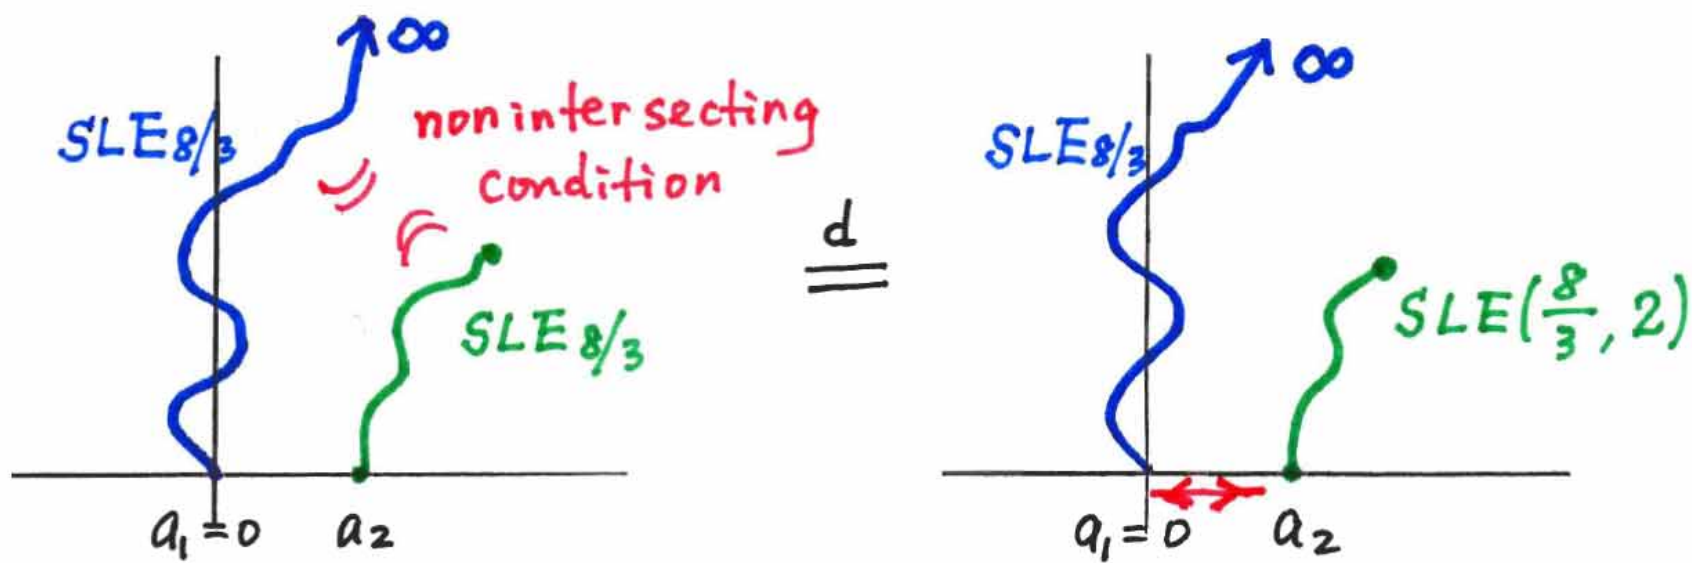 ∞
SLE8/3
non intersecting
condition
SLE8/3
a1=0
a2
d
=
∞
SLE8/3
SLE(8/3, 2)
a1=0
a2